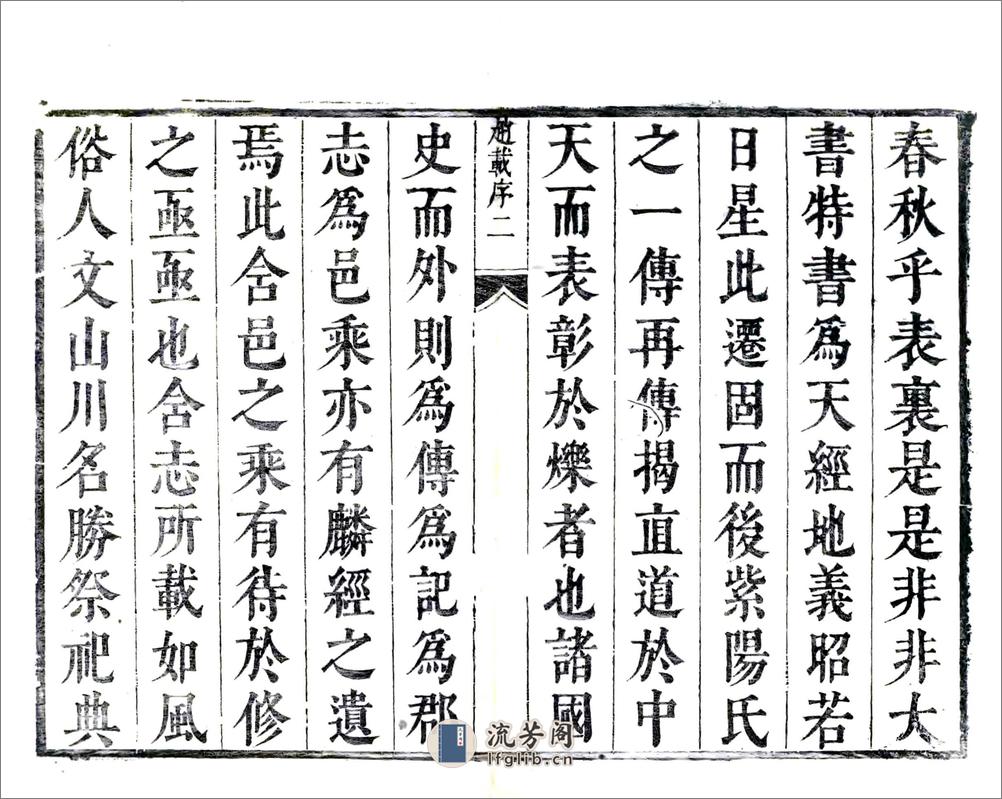 春秋乎表裏是是非非大
書特書爲天經地義昭若
日星此遷固而後紫陽氏
之一傳再傳揭直道於中
天而表彰於爍者也諸國
趙載序二
史而外則爲傳爲記爲郡
志爲邑乘亦有麟經之遺
焉此舍邑之乘有待於修
之亟亟也舍志所載如風
俗人文山川名勝祭祀典
流芳阁
lfglib.cn